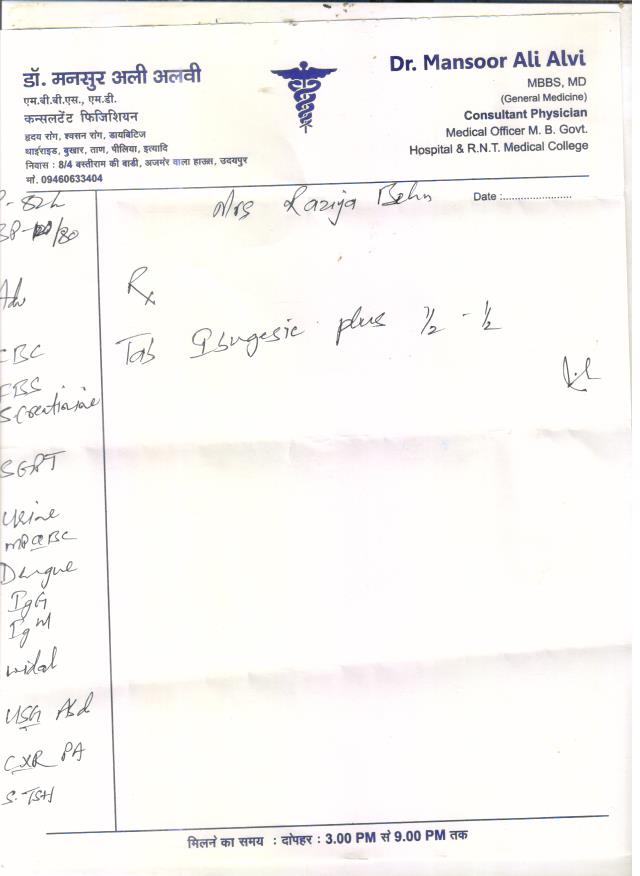 डॉ. मनसुर अली अलवी
एम.बी.बी.एस., एम.डी.
कन्सलटेंट फिजिशियन
हृदय रोग, श्वसन रोग, डायबिटिज
थाईराइड, बुखार, ताण, पीलिया, इत्यादि
निवास : 8/4 बस्तीराम की बाडी, अजमेर वाला हाउस, उदयपुर
मो. 09460633404
Dr. Mansoor Ali Alvi
MBBS, MD
(General Medicine)
Consultant Physician
Medical Officer M. B. Govt.
Hospital & R.N.T. Medical College
Mrs Raziya Behn
Date :......................
P-82
BP-120/80
Adv
CBC
FBS
S Creatinine
SGPT
Urine
MP
Dengue
IgG
IgM
widal
USG Abd
CXR PA
S. TSH
Rx
Tab Ibugesic plus 1/2 - 1/2
मिलने का समय : दोपहर : 3.00 PM से 9.00 PM तक